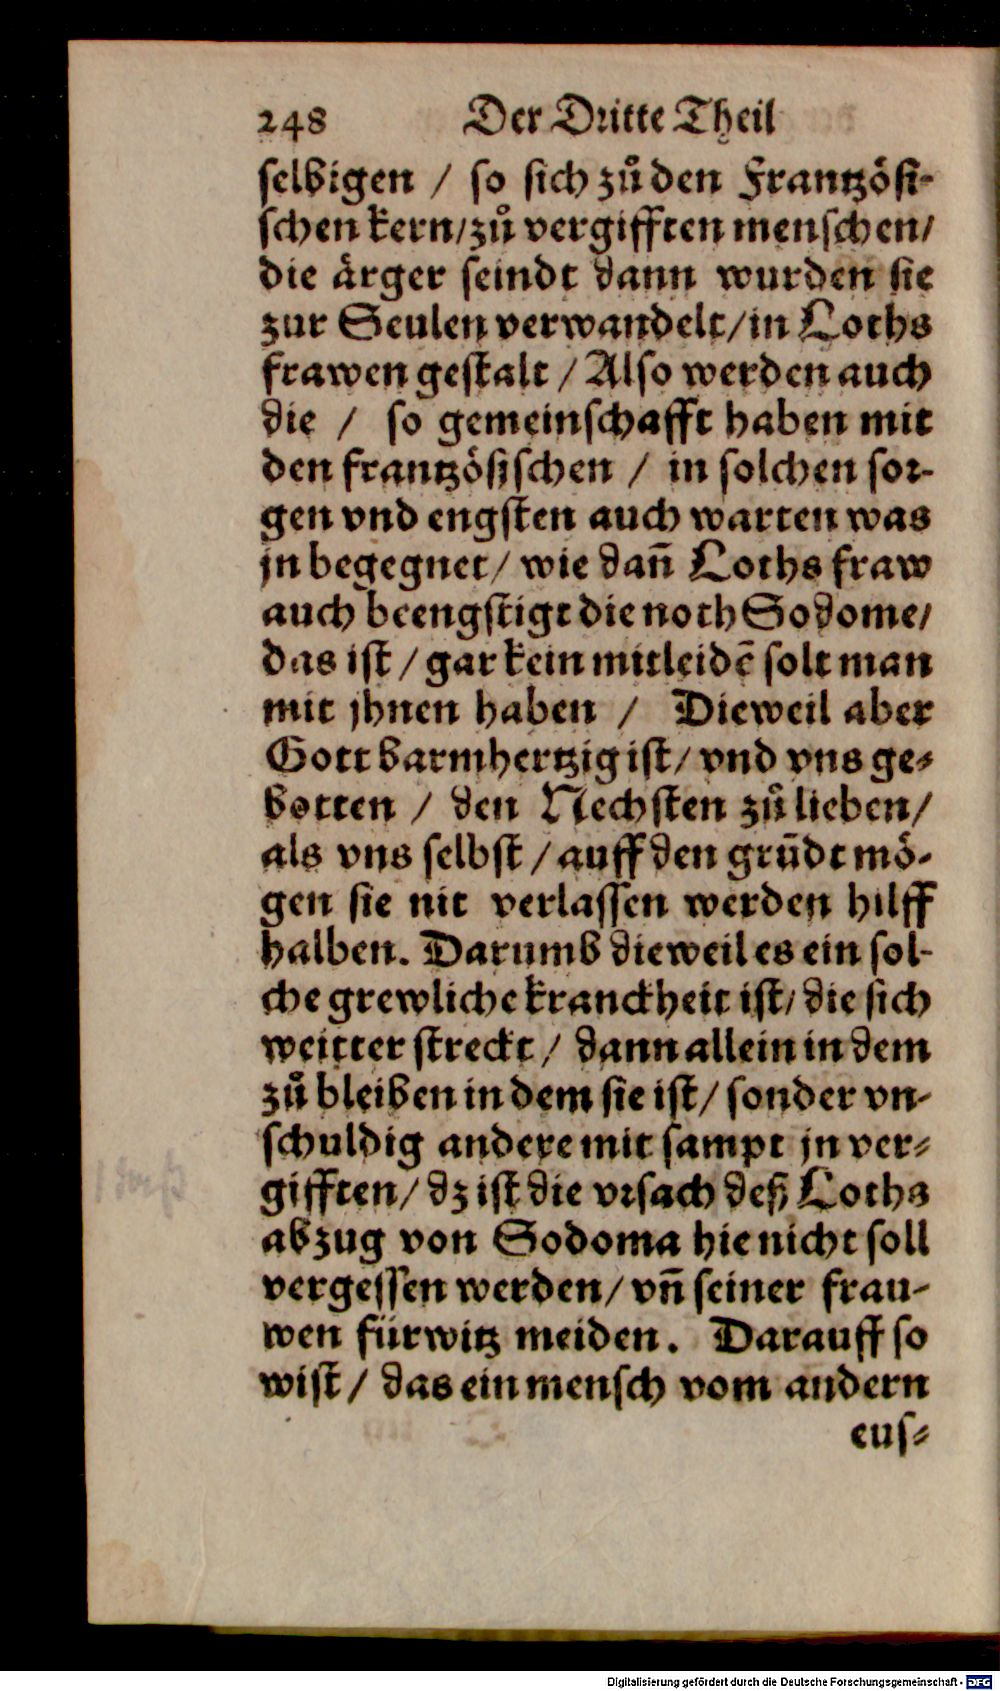 248 Der Dritte Theil
selbigen / so sich zů den Frantzösi-
schen kern/zů vergifften menschen/
die ärger seindt dann wurden sie
zur Seulen verwandelt/in Loths
frawen gestalt / Also werden auch
die / so gemeinschafft haben mit
den frantzösischen / in solchen sor-
gen vnd engsten auch warten was
jn begegnet/ wie dañ Loths fraw
auch beengstigt die noth Sodome/
das ist / gar kein mitleidē solt man
mit jhnen haben / Dieweil aber
Gott barmhertzig ist/ vnd vns ge-
botten / den Nechsten zů lieben/
als vns selbst / auff den grūdt mö-
gen sie nit verlassen werden hilff
halben. Darumb dieweil es ein sol-
che grewliche kranckheit ist/ die sich
weitter streckt / dann allein in dem
zů bleiben in dem sie ist/ sonder vn-
schuldig andere mit sampt jn ver-
gifften/ dz ist die vrsach deß Loths
abzug von Sodoma hie nicht soll
vergessen werden/ vñ seiner frau-
wen fürwitz meiden. Darauff so
wist / das ein mensch vom andern
eus-
Digitalisierung gefördert durch die Deutsche Forschungsgemeinschaft - DFG